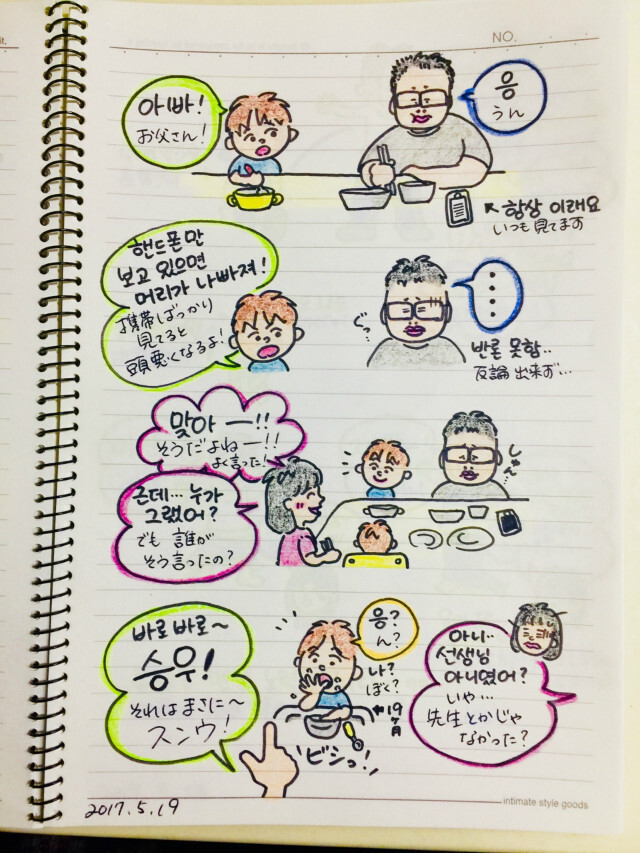 NO.
아빠!
お父さん!
응
うん
↖ 항상 이래요
いつも見てます
핸드폰만
보고 있으면
머리가 나빠져!
携帯ばっかり
見てると
頭悪くなるよ!
ぐっ‥
반론 못함..
反論出来ず…
맞아 ー!!
そうだよねー!!
よく言った!
근데… 누가
그랬어?
でも 誰が
そう言ったの?
しゅん…
바로바로~
승우!
それはまさに~
スンウ!
응?
ん?
나?
ぼく?
19
ヶ月
ビシっ!
아니‥
선생님
아니였어?
いや…
先生とかじゃ
なかった?
2017.5.19
intimate style goods